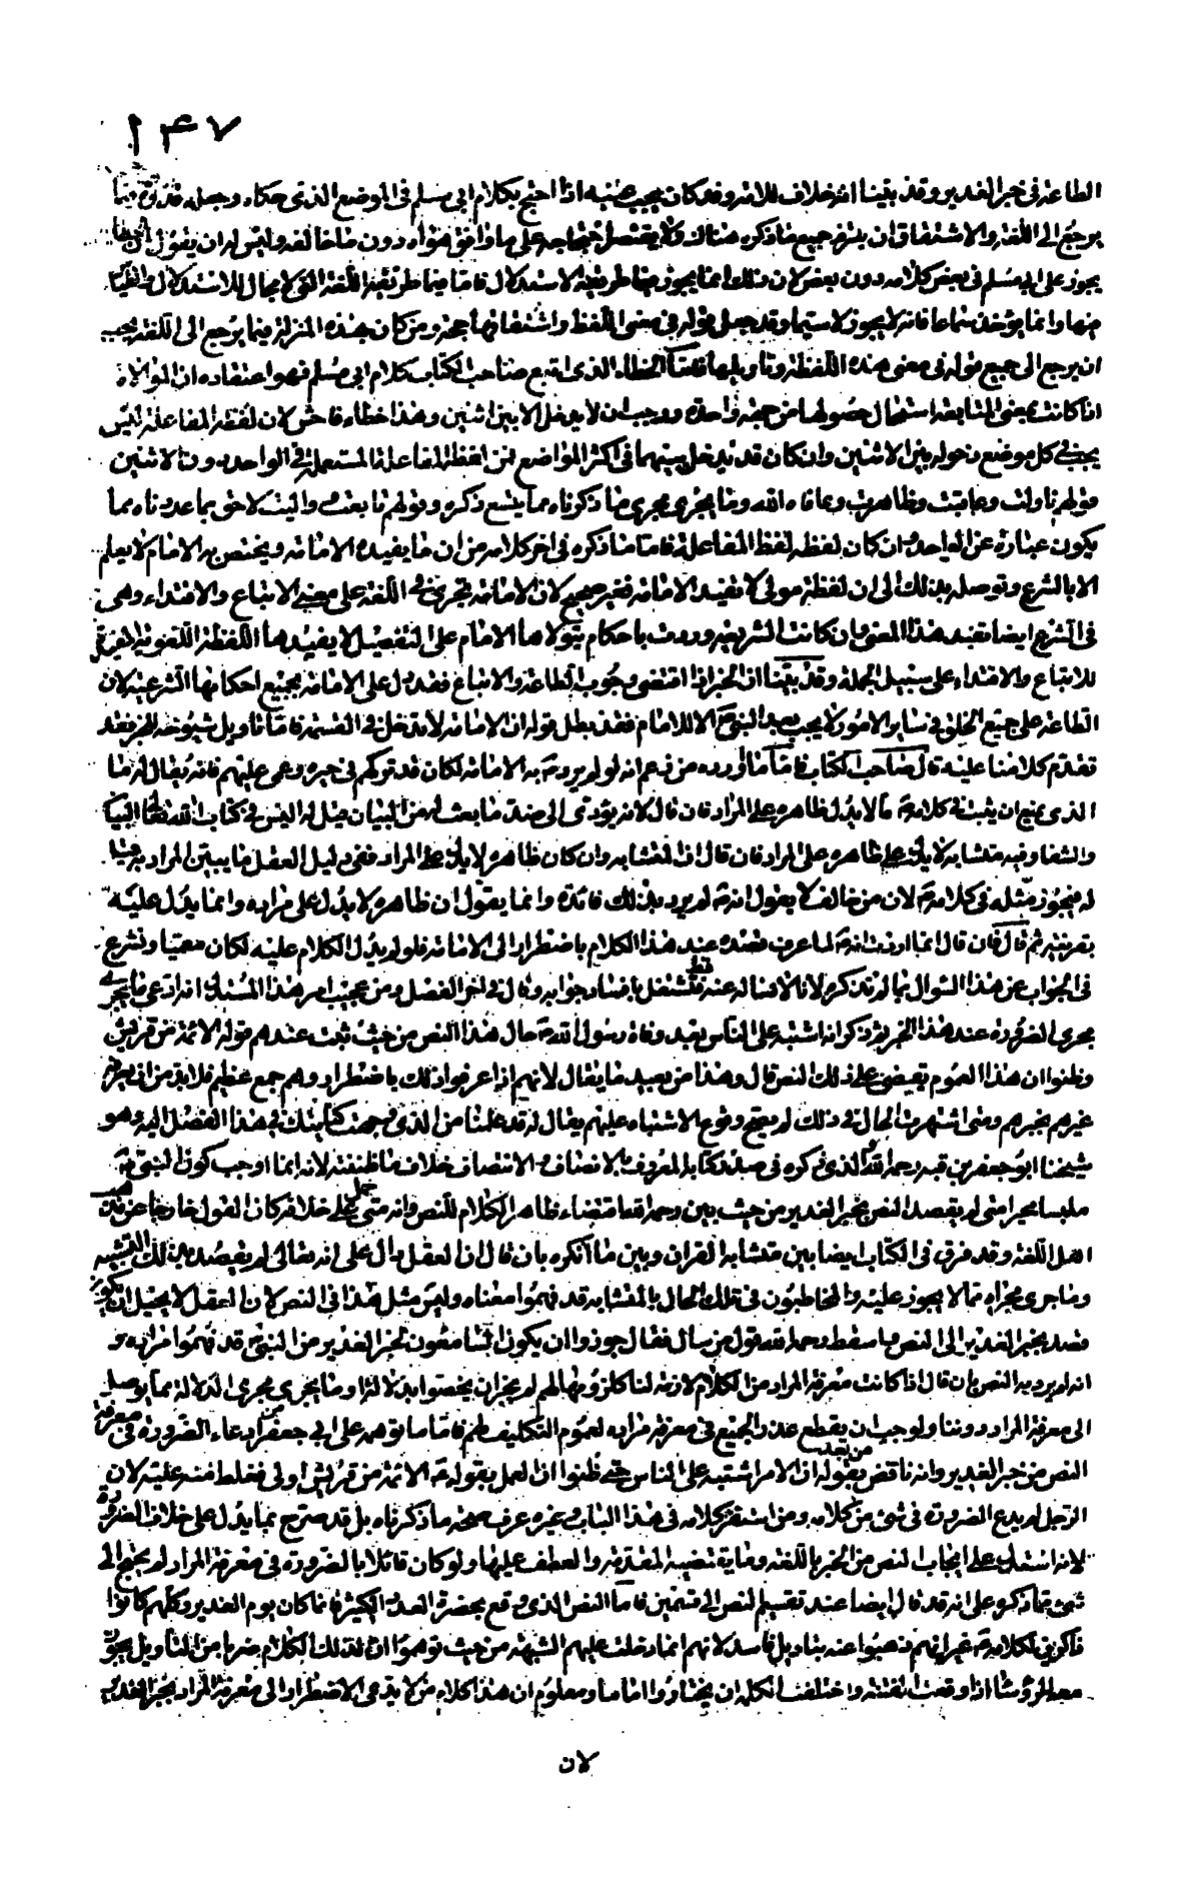 ١٤٧
الطاعة في خبر الغدير وقد بينا انه خلاف للامة وقد كان يجب عليه اذا احتج بكلام ابي مسلم في الموضع الذي حكاه وجعله قدوة فيما
يرجع الى اللغة والاشتقاق ان يلتزم جميع ما ذكره هناك ولا يقتصر احتجاجه على ما وافق هواه دون ما خالفه وليس له ان يقول ان الخطأ
يجوز على ابي مسلم في بعض كلامه دون بعض لان ذلك انما يجوز فيما طريقه الاستدلال فاما فيما طريقه اللغة التي لا مجال للاستدلال والقياس
فيها وانما يؤخذ سماعا فانه لا يجوز لا سيما وقد جعل قوله في معنى اللفظ واشتقاقها حجة ومن كان بهذه المنزلة فيما يرجع الى اللغة يجب
ان يرجع الى جميع قوله في معنى هذه اللفظة وتاويلها فاما الخطاء الذي اتبع صاحب الكتاب كلام ابي مسلم فهو اعتقاده ان الموالاة
اذا كانت بمعنى المتابعة استحال حصولها من جهة واحدة ووجب ان لا يدخل الا بين اثنين وهذا خطاء فاحش لان لفظة المفاعلة ليس
يجب في كل موضع دخوله بين الاثنين وان كان قد تدخل بينهما في اكثر المواضع فمن لفظة المفاعلة المستعملة في الواحد دون الاثنين
قولهم ناولت وعاقبت وظاهرت وعافاه الله وما يجري مجرى ما ذكرناه مما يتسع ذكره وقولهم تابعت وواليت لاحق بما عددناه مما
يكون عبارة عن الواحد وان كان لفظه لفظ المفاعلة فاما ما ذكره في اخر كلامه من ان ما يفيده الامامة ويختص به الامام لا يعلم
الا بالشرع وتوصله بذلك الى ان لفظة مولى لا تفيد الامامة فغير صحيح لان الامامة تجري في اللغة على معنى الاتباع والاقتداء وهي
في الشرع ايضا تفيد هذا المعنى وان كانت الشريعة وردت باحكام يتولاها الامام على التفصيل لا يفيدها اللفظة اللغوية المفيدة
للاتباع والاقتداء على سبيل الجملة وقد بينا ان الخبر اذا اقتضى وجوب الطاعة والاتباع فقد دل على الامامة بجميع احكامها الشرعية لان
الطاعة على جميع الخلق في سائر الامور لا يجب بعد النبي الا للامام فقد بطل قوله ان الامامة لا تدخل في القسمة فاما تاويل شيوخه للخبر فقد
تقدم كلامنا عليه قال صاحب الكتاب فاما ما اورده من زعم انه لو لم يرد به الامامة لكان قد تركهم في حيرة وعمى عليهم فانه يقال له ما
الذي يمنع ان يثبت في كلامه ما لا يدل ظاهره على المراد فان قال لانه يؤدي الى ضد ما بعث له من البيان قيل له اليس في كتاب الله تعالى البيان
والشفا وفيه متشابه لا يدل ظاهره على المراد فان قال ان المتشابه وان كان ظاهره لا يدل على المراد ففي دليل العقل ما يبين المراد به قيل
له فيجوز مثله في كلامه لان من خالف لا يقول انه لم يرد بذلك فائدة وانما يقول ان ظاهره لا يدل على مراده وانما يدل عليه
بقرينة ثم قال فان قال انما اردت انه لما عرف قصده عند هذا الكلام باضطرار الى الامامة فلو لم يدل الكلام عليه لكان معميا وتشرع
في الجواب عن هذا السوال بما لم نذكره لانا لا نسأله عنه قط فنشتغل بافساد جوابه وقال في اخر الفصل ومن عجيب امر هذا المستدل انه ادعى ما يجري
مجرى الضرورة عند هذا الخبر ثم ذكر انه اشتبه على الناس بعد وفاة رسول الله حال هذا النص من حيث ثبت عندهم قوله الائمة من قريش
وظنوا ان هذا العموم يعضي على ذلك النص قال وهذا من بعيد ما يقال لانهم اذا عرفوا ذلك باضطرار وهم جمع عظيم فلا بد من ان يعرفه
غيرهم بخبرهم ومتى اشتهرت الحال في ذلك لم يصح وقوع الاشتباه عليهم يقال له قد علمنا من الذي وجهت كتابتك في هذا الفصل اليه وهو
شيخنا ابو جعفر بن قبة رحمه الله والذي ذكره في صدر كتابه المعروف بالانصاف والانتصاف خلاف ما ظننته لانه انما اوجب كون النبي
ملبسا محيرا متى لم يقصد النص بخبر الغدير من حيث بين رحمه الله اقتضاء ظاهر الكلام للنص وانه متى حمل على خلافه كان القول خارجا عن مذهب
اهل اللغة وقد فرق في الكتاب ايضا بين متشابه القران وبين ما انكره بان قال ان العقل دال على انه تعالى لم يقصد بذلك التشبيه
وما جرى مجراه مما لا يجوز عليه والمخاطبون في تلك الحال بالمتشابه قد فهموا معناه وليس مثل هذا في النص لان العقل لا يحيل ان يكون
قصد بخبر الغدير الى النص واسقط رحمه الله قول من سأل فقال جوزوا ان يكون السامعون لخبر الغدير من النبي قد فهموا مراده و
انه لم يرد به النص بان قال اذا كانت معرفة المراد من الكلام لازمة لنا كلزومها لهم لم يجز ان يخصوا بدلالة او ما يجري مجرى الدلالة مما يوصل
الى معرفة المراد دوننا ولوجب ان يقطع عذر الجميع في معرفة مراده لعموم التكليف لهم فاما ما توهمه على ابي جعفر من ادعاء الضرورة في معرفة
النص من خبر الغدير وانه ناقض من بعد بقوله ان الامر اشتبه على الناس حتى ظنوا ان العمل بقوله الائمة من قريش اولى فغلط منه عليه لان
الرجل لم يدع الضرورة في شيء من كلامه ومن استقرء كلامه في هذا الباب وغيره عرف صحة ما ذكرناه بل قد صرح بما يدل على خلاف الضرورة
لانه استدل على ايجاب النص من الخبر باللغة وما يقتضيه المقدمة والعطف عليها ولو كان قائلا بالضرورة في معرفة المراد لم يحتج الى
شيء مما ذكره على انه قد قال ايضا عند تقسيم النص الى قسمين فاما النص الذي وقع بحضرة العدد الكثير فانما كان يوم الغدير وكلهم كانوا
ذاكرين لكلامه غير انهم ذهبوا عنه بتاويل فاسد لانهم انما دخلت عليهم الشبهة من حيث توهموا ان لذلك الكلام ضربا من التاويل يجوز
معه للرؤساء اذا وقعت الفتنة واختلفت الكلمة ان يختاروا اماما ومعلوم ان هذا كلام من لا يدعي الاضطرار الى معرفة المراد بخبر الغدير
لان